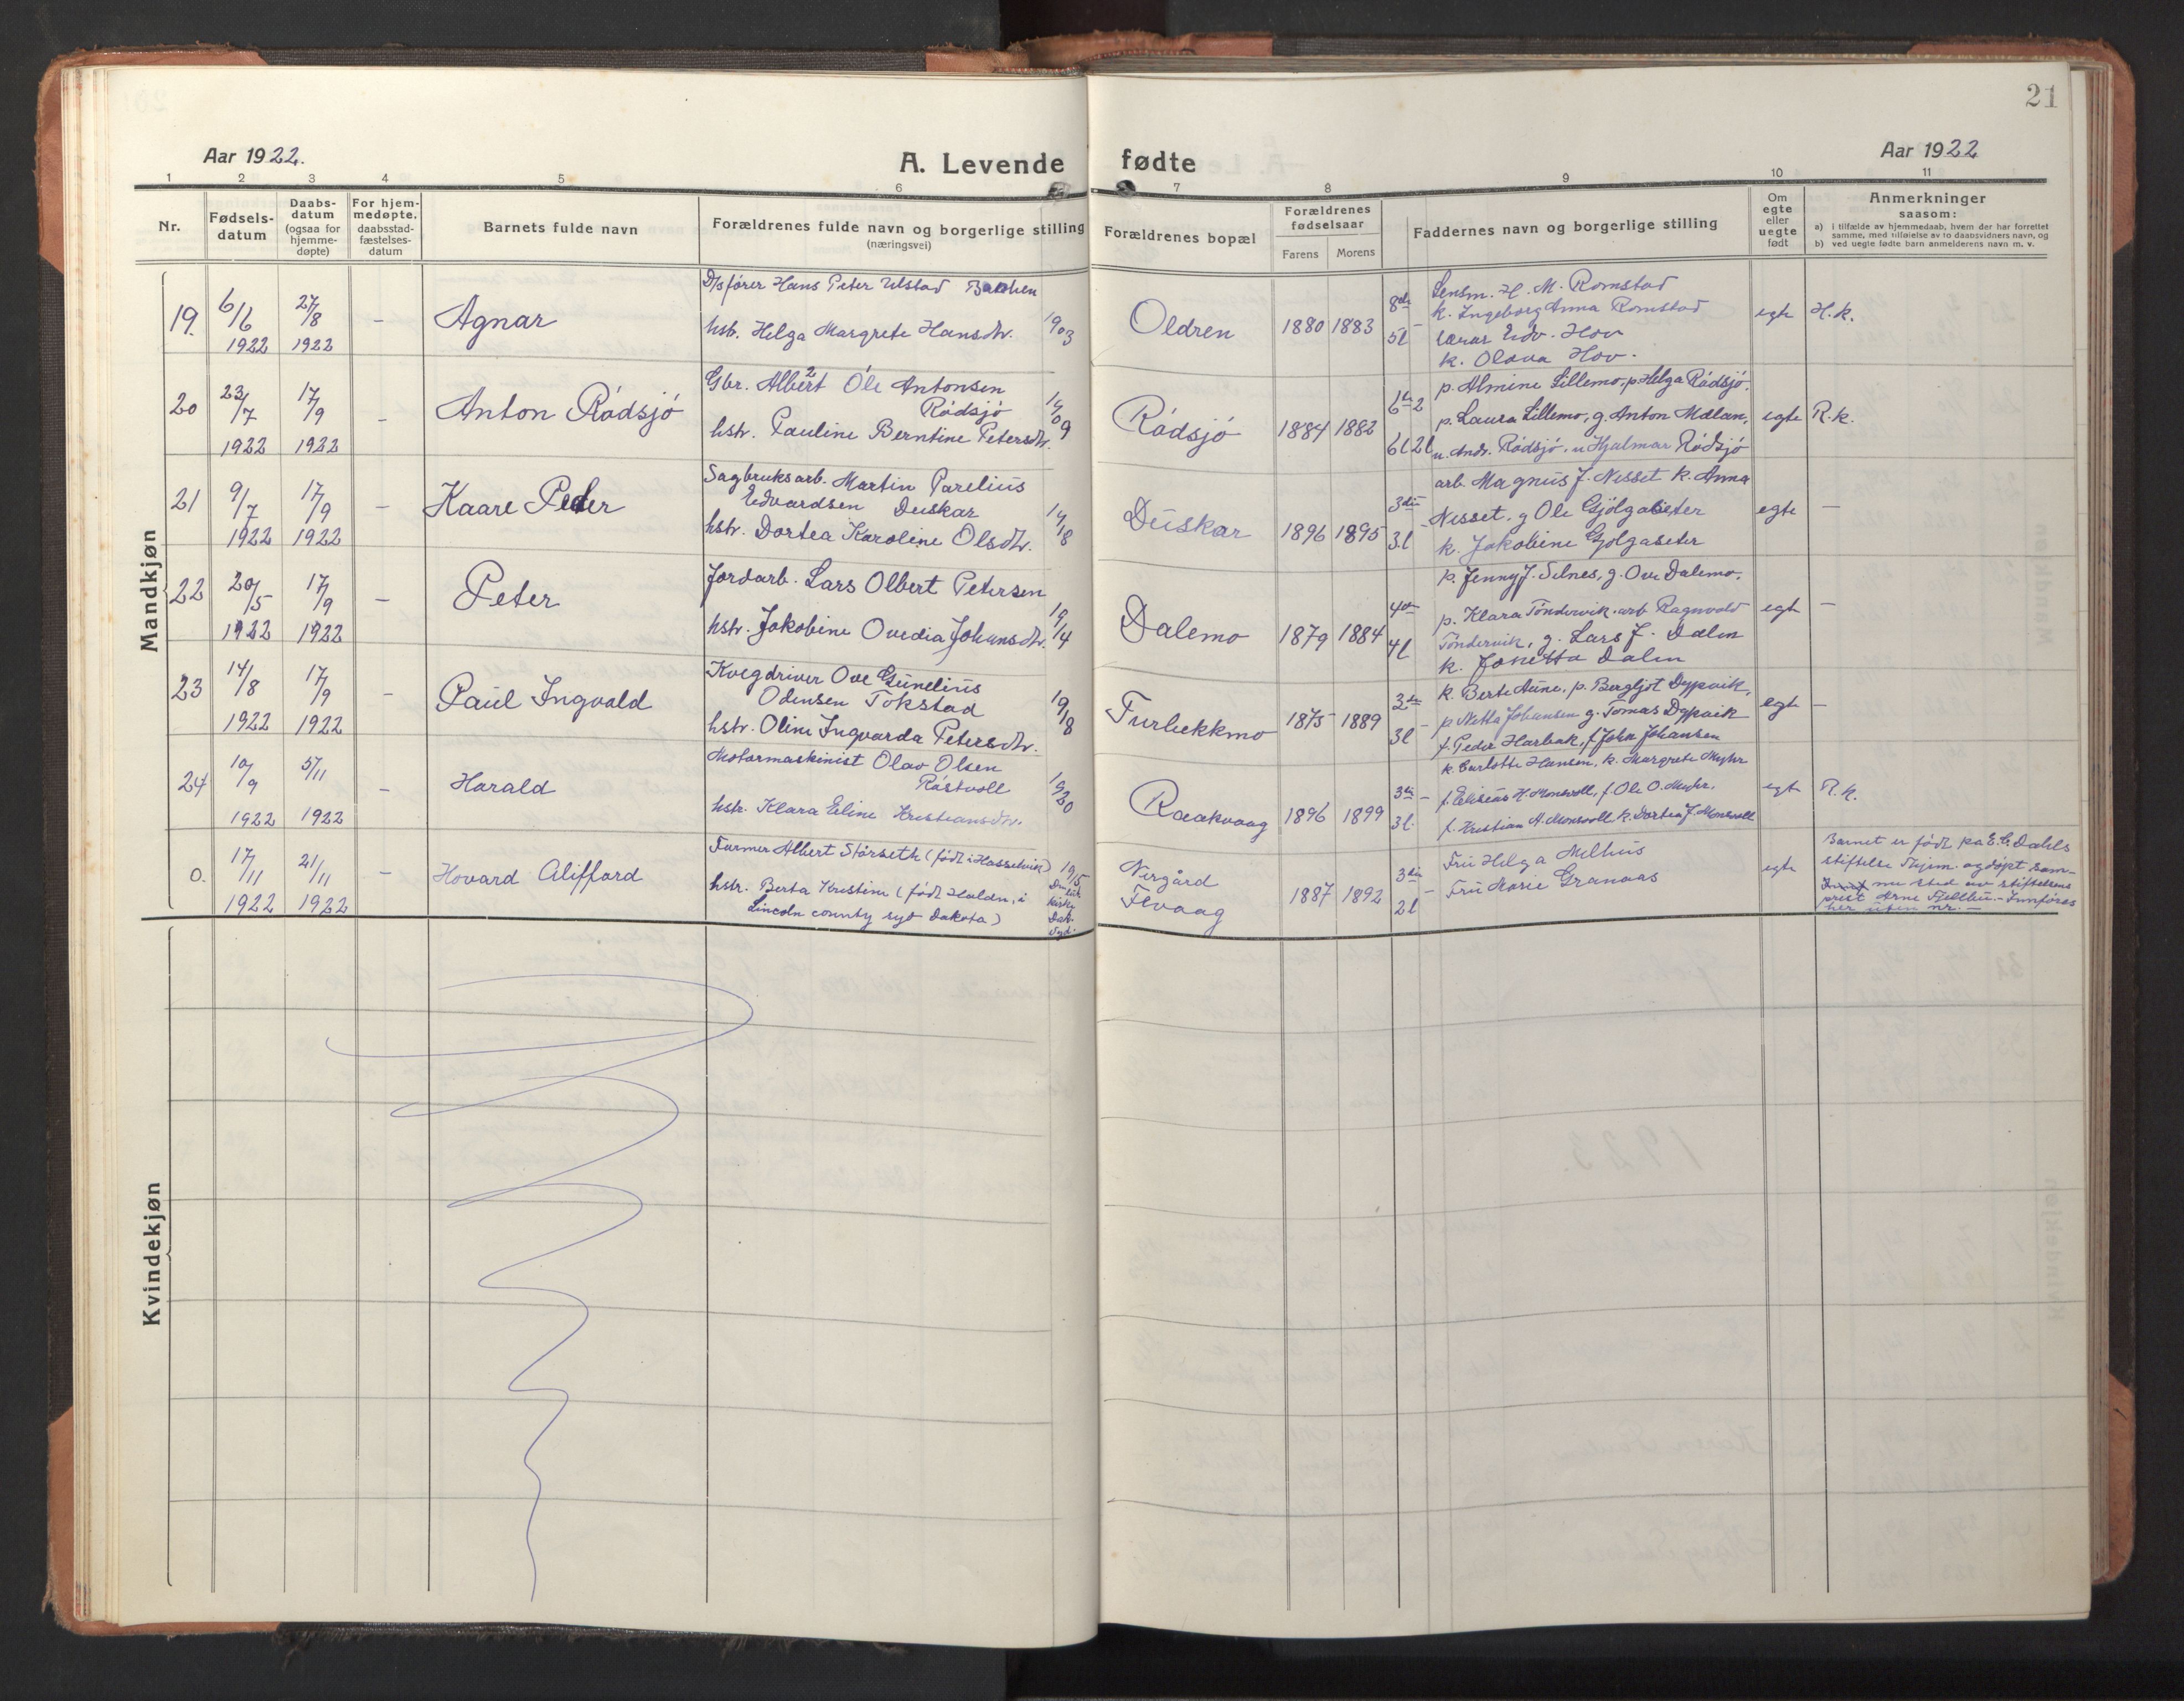 21
Aar 1922.
A. Levende fødte
Aar 1922
1 2 3 4 5 6 7 8 9 10 11
Nr.
Fødsels-
datum
Daabs-
datum
(ogsaa for
hjemme-
døpte)
For hjem-
medøpte,
daabsstad-
fæstelses-
datum
Barnets fulde navn
Forældrenes fulde navn og borgerlige stilling
(næringsvei)
Forældrenes bopæl
Forældrenes
fødselsaar
Farens Morens
Faddernes navn og borgerlige stilling
Om
egte
eller
uegte
født
Anmerkninger
saasom:
a) i tilfælde av hjemmedaab, hvem der har forrettet
samme, med tilføielse av to daabsvidners navn, og
b) ved uegte fødte barn anmelderens navn m. v.
Mandkjøn
19. 6/6 1922 27/8 1922 – Agnar
D/sfører Hans Peter Ulstad
hstr. Helga Margrete Hansdtr. 1903
Oldren 1880 1883
5l
Lensm. H. M. Romstad
k. Ingeborg Anna Romstad
lærer Edv. Hov
k. Olava Hov.
egte H.k.
20 23/7 1922 17/9 1922 – Anton Rödsjö
Gbr. Albert Ole Antonsen
Rödsjö
hstr. Pauline Berntine Petersdtr. 14/09
Rödsjö 1884 1882
6l 2l
p. Almine Lillemo, p. Helga Rödsjö,
p. Laura Lillemo, g. Anton Mælan,
u. Andr. Rödsjö, u. Hjalmar Rödsjö
egte R.k.
21 9/7 1922 17/9 1922 – Kaare Peder
Sagbruksarb. Martin Parelius
Edvardsen Duskar
hstr. Dortea Karoline Olsdtr. 14/18
Duskar 1896 1895
3l
arb. Magnus J. Nesset k. Anna
Nesset, g Ole Gjölgaseter
k. Jakobine Gjölgaseter
egte –
22 20/5 1922 17/9 1922 – Peter
Jordarb. Lars Olbert Petersen
hstr. Jakobine Ovedia Johansdtr. 19/14
Dalemo 1879 1884
4l
p. Jenny J. Selnes, g. Ove Dalemo,
p. Klara Töndervik, arb Ragnvald
Töndervik, g. Lars J. Dalen
k. Jonetta Dalen
egte –
23 14/8 1922 17/9 1922 – Paul Ingvald
Kvegdriver Ove Gunelius
Odensen Tokstad
hstr. Oline Ingvarda Petersdtr. 19/18
Furbekkmo 1875 1889
3l
k. Berte Aune, p. Bergljot Dypvik,
p Netta Johansen g. Tomas Dypvik
f. Peder Harbak, f John Johansen
egte –
24 10/9 1922 5/11 1922 – Harald
Motormaskinist Olav Olsen
Råstvoll
hstr. Klara Eline Kristiansdtr. 1920
Raakvaag 1896 1899
3l.
k. Carlotte Hansen, k. Margrete Myhr
f. Eliseus H. Monsvoll, f. Ole O. Myhr,
f. Kristian A. Monsvoll k. Dortea J. Monsvoll
egte R.k.
0. 17/11 1922 21/11 1922 – Hovard Cliffard
Farmer Albert Störseth (født i Hasselvik) 19/5
hstr. Berta Kristine (født Halden, i
Lincoln county syd Dakota)
Nergård
Flvaag 1887 1892
2l
Fru Helga Melhus
Fru Marie Granaas
egte
Barnet er født paa E. C. Dahls
stiftelse Trhjem. og döpt sam-
me sted av stiftelsens
prest Arne Fjellbu. – Innföres
her uten nr. –
Kvindekjøn